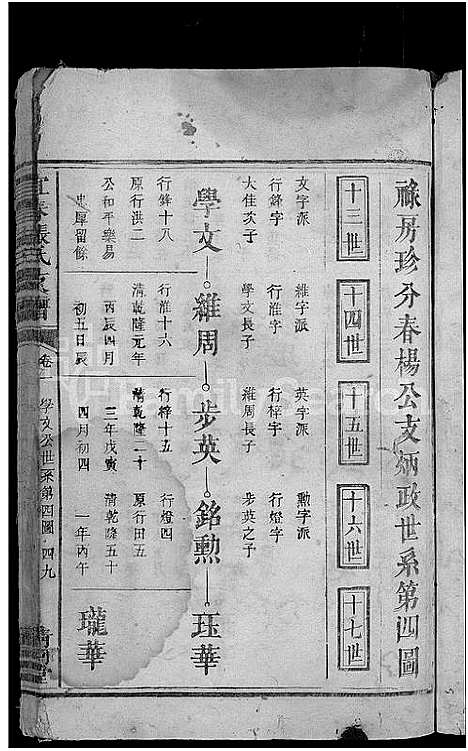 祿房珍分春楊公支炳政世系第四圖
十三世 十四世 十五世 十六世 十七世
文字派 維字派 英字派 勲字派
行鋒字 行淮字 行梓字 行燈字
大佳次子 學文長子 維周長子 步英之子
學文 維周 步英 銘勲 珏華
行鋒十八 行淮十六 行梓十五 行燈四
原行洪二 清乾隆元年 清乾隆二十 原行田五
公和平樂易 丙辰四月 三年戊寅 清乾隆五十
忠厚留餘 初五日辰 四月初四 一年丙午
瓏華
張氏支譜
卷一 學文公世系第四圖 四九
FamilySearch